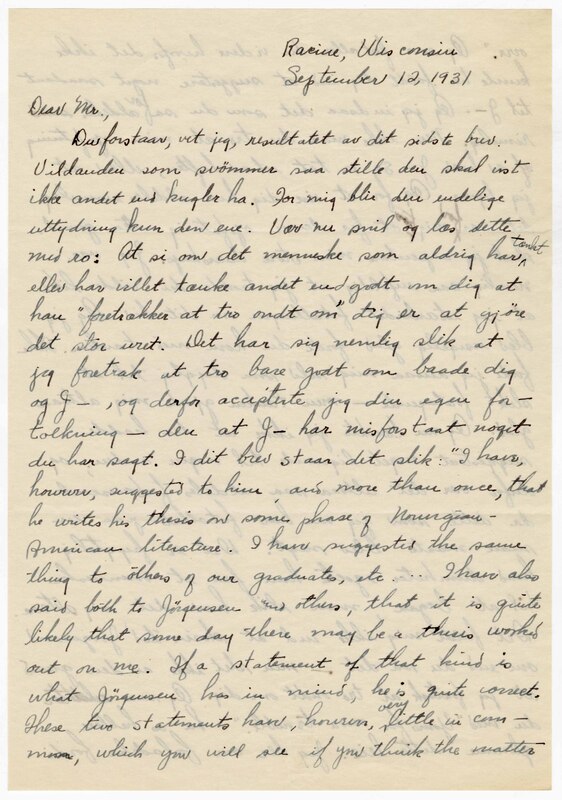 Racine, Wisconsin
September 12, 1931
Dear Mr.,
Du forstaar, vet jeg, resultatet av dit sidste brev.
Vildanden som svömmer saa stille den skal vist
ikke andet end kugler ha. For mig blir den endelige
uttydning kun den ene. Vær nu snil og læs dette
med ro: At si om det menneske som aldrig har tænkt
eller har villet tænke andet end godt om dig at
han "foretrækker at tro ondt om" dig er at gjöre
det stor uret. Det har sig nemlig slik at
jeg foretrak at tro bare godt om baade dig
og J—, og derfor accepterte jeg din egen for-
tolkning — den at J— har misforstaat noget
du har sagt. I dit brev staar det slik: "I have,
however, suggested to him, and more than once, that
he writes his thesis on some phase of Norwegian-
American literature. I have suggested the same
thing to others of our graduates, etc.... I have also
said both to Jörgensen and others, that it is quite
likely that some day there may be a thesis worked
out on me. If a statement of that kind is
what Jörgensen has in mind, he is quite correct.
These two statements have, however, very little in com-
mon, which you will see if you think the matter